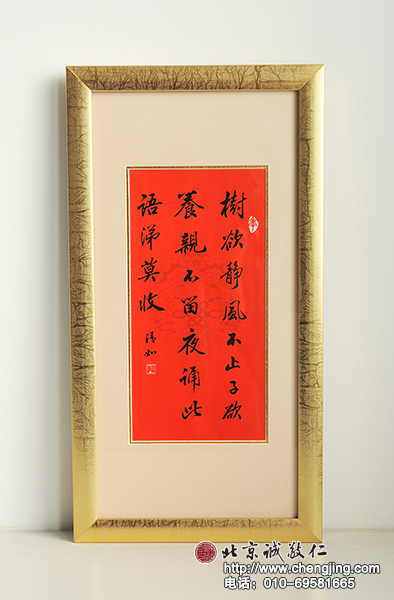 樹欲静風不止子欲
養親不留夜誦此
语涕莫收
清如
北京诚敬仁
http://www.chengjing.com
电话：010-69581665